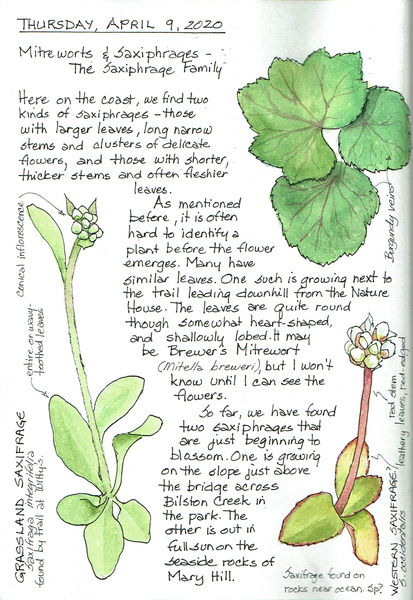 THURSDAY, APRIL 9, 2020
Mitreworts & Saxiphrages -
The Saxiphrage Family
Here on the coast, we find two
kinds of saxiphrages - those
with larger leaves, long narrow
stems and clusters of delicate
flowers, and those with shorter,
thicker stems and often fleshier
leaves.
As mentioned
before, it is often
hard to identify a
plant before the flower
emerges. Many have
similar leaves. One such is growing next to
the trail leading downhill from the Nature
House. The leaves are quite round
though somewhat heart-shaped,
and shallowly lobed. It may
be Brewer's Mitrewort
(Mitella breweri), but I won't
know until I can see the
flowers.
So far, we have found
two saxiphrages that
are just beginning to
blossom. One is growing
on the slope just above
the bridge across
Bilston Creek in
the park. The
other is out in
full sun on the
seaside rocks of
Mary Hill.
Conical inflorescence
entire or wavy-
toothed leaves
GRASSLAND SAXIFRAGE
Saxifraga integrifolia
found by trail at
Burgundy veins
Red stem
leathery leaves, red-edged
WESTERN SAXIFRAGE?
S. occidentalis
Saxifrage found on
rocks near ocean. Sp?